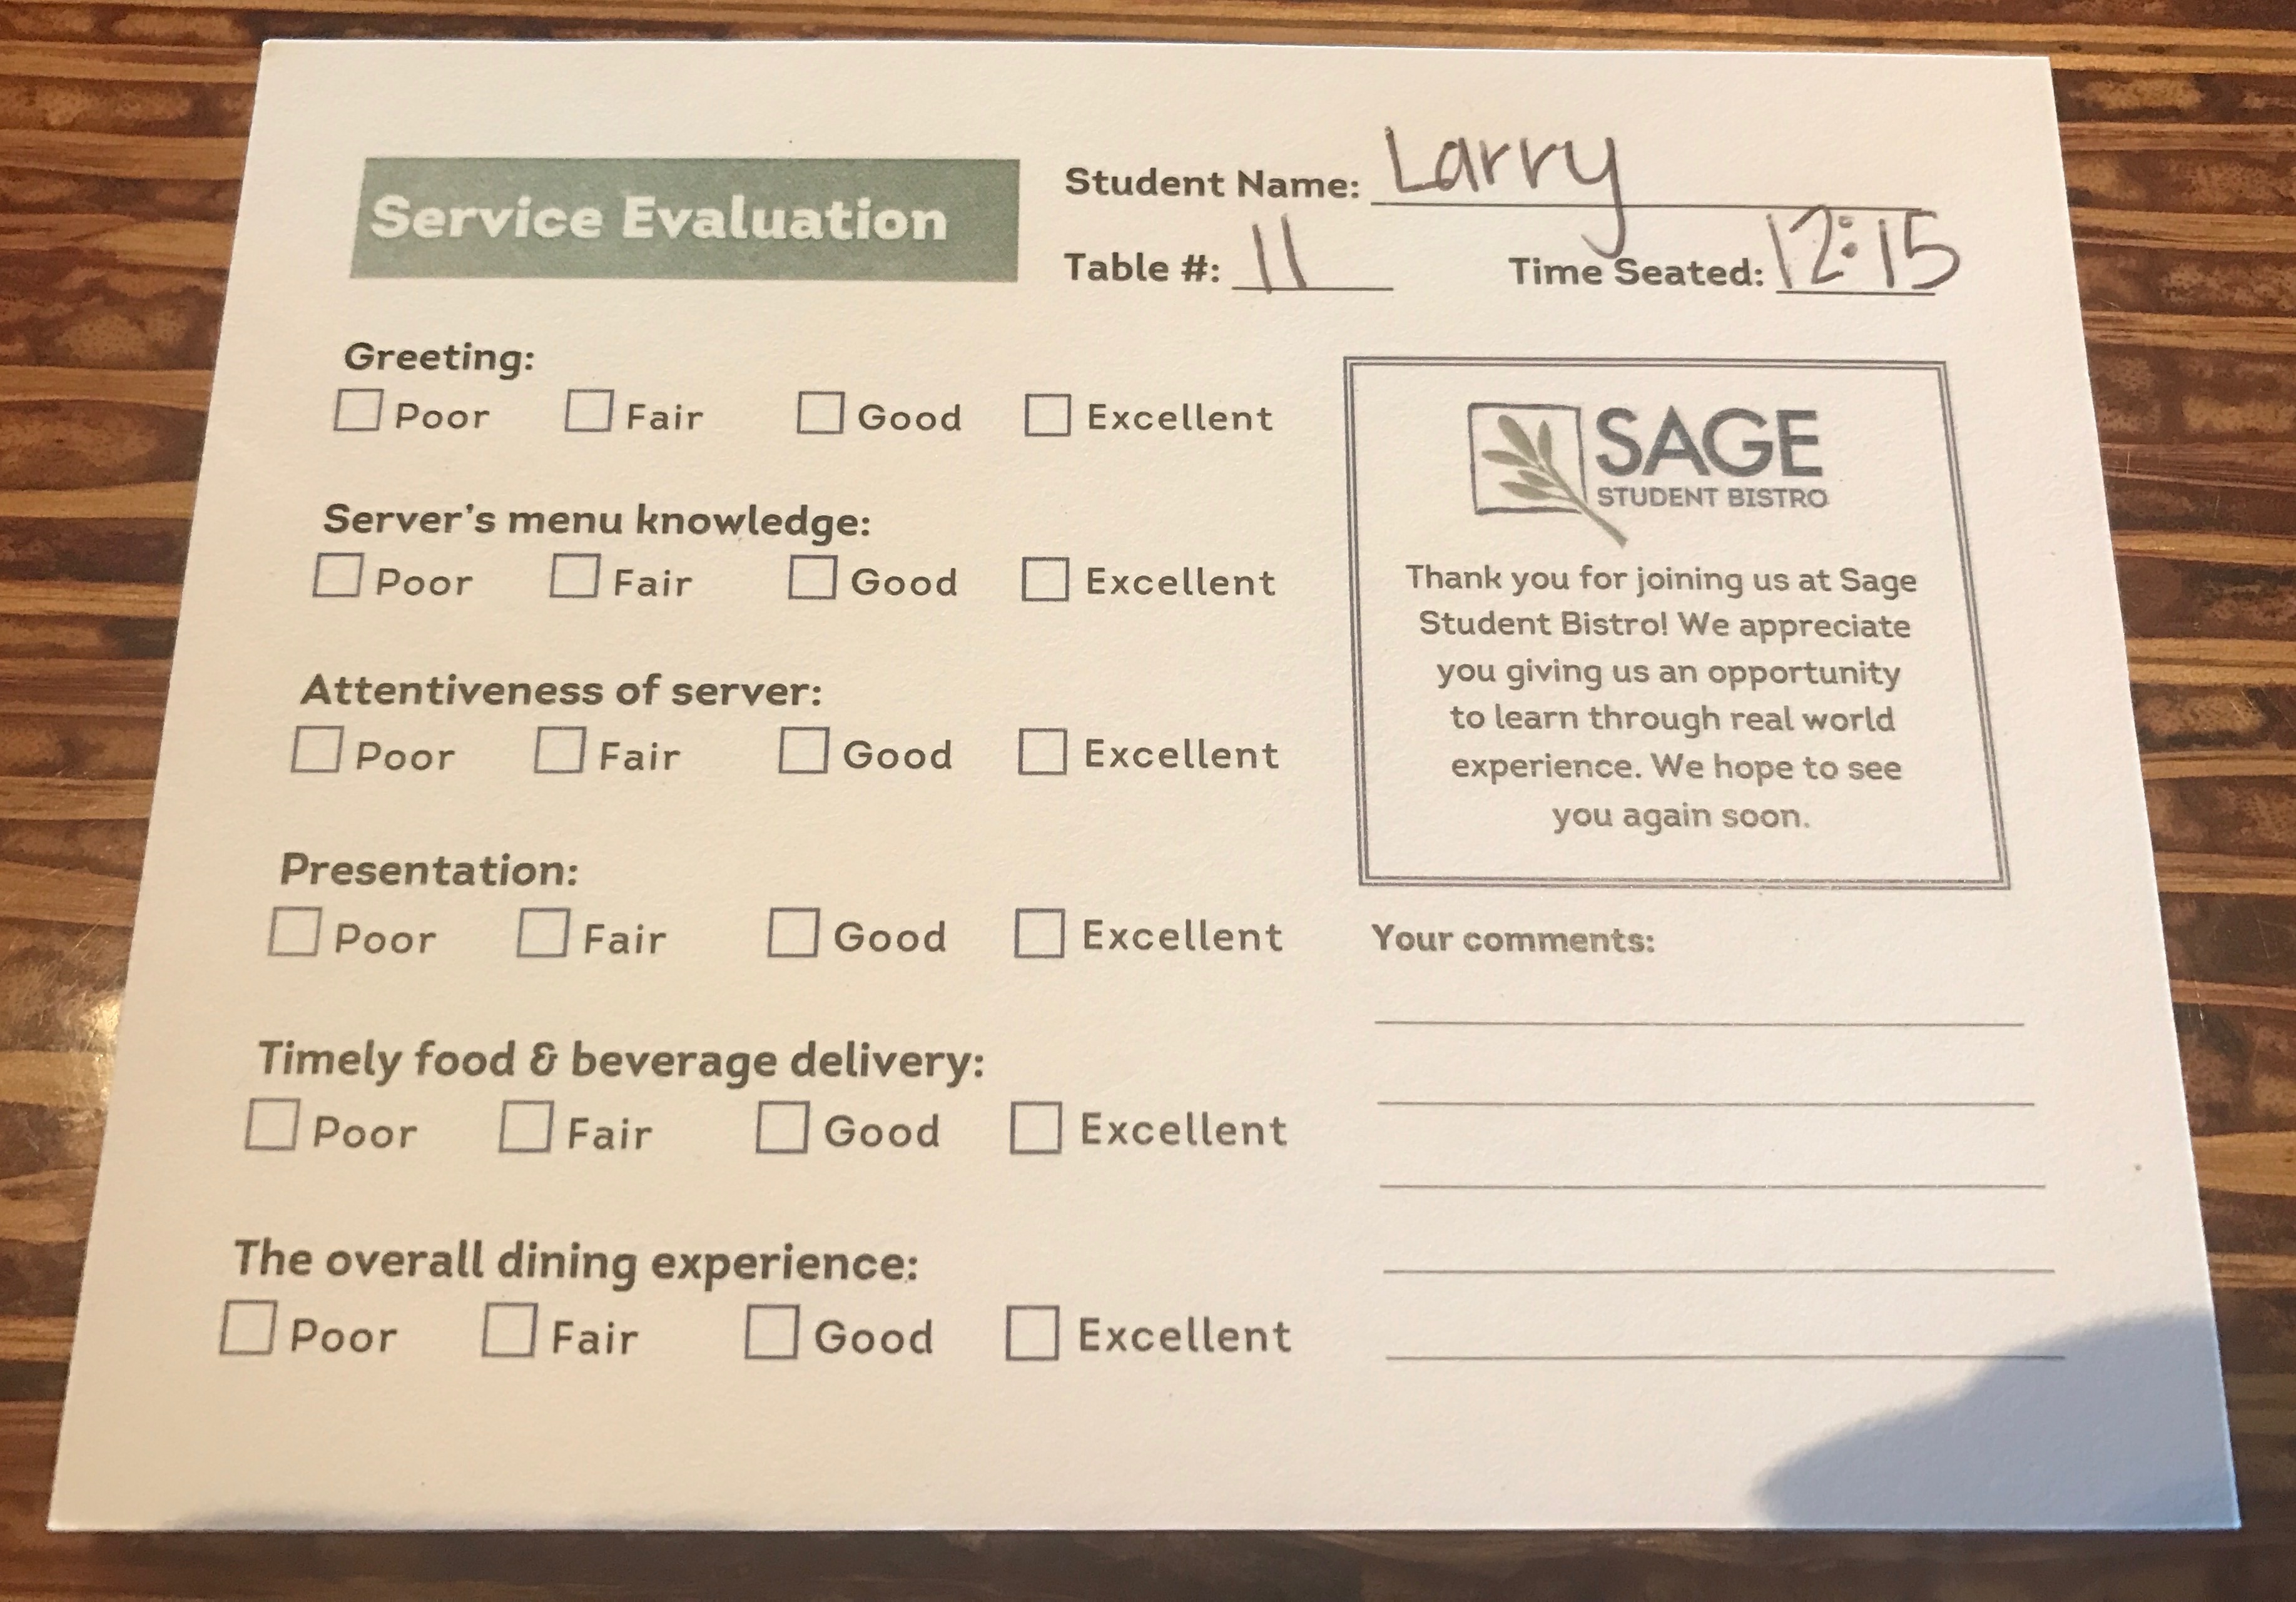 Service Evaluation
Student Name: Larry
Table #: 11 Time Seated: 12:15
Greeting:
Poor Fair Good Excellent
Server's menu knowledge:
Poor Fair Good Excellent
Attentiveness of server:
Poor Fair Good Excellent
Presentation:
Poor Fair Good Excellent
Timely food & beverage delivery:
Poor Fair Good Excellent
The overall dining experience:
Poor Fair Good Excellent
SAGE
STUDENT BISTRO
Thank you for joining us at Sage
Student Bistro! We appreciate
you giving us an opportunity
to learn through real world
experience. We hope to see
you again soon.
Your comments: